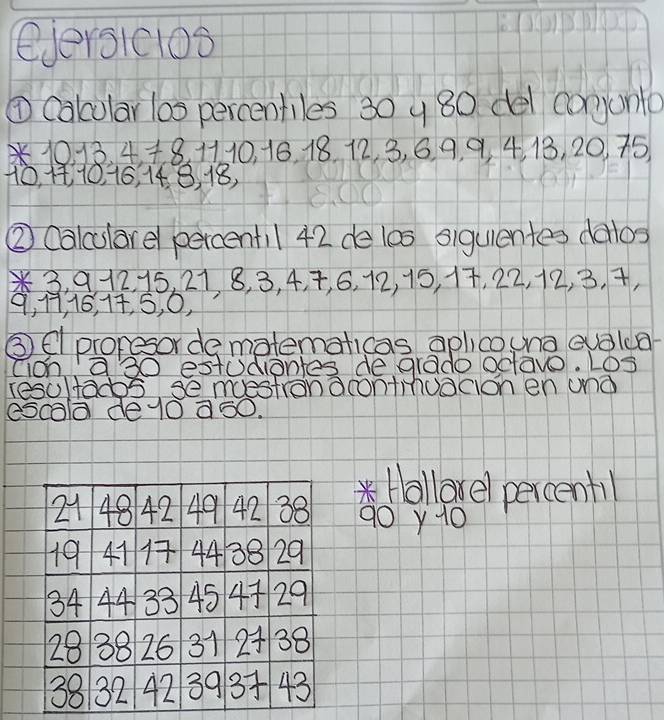 Ejersicios
① Calcular los percentiles 30 y 80 del conjunto
* 10, 13, 4, 7, 8, 11, 10, 16, 18, 12, 3, 6, 9, 9, 4, 13, 20, 75,
10, 17, 10, 16, 14, 8, 18,
② Calcular el percentil 42 de los siguientes datos
* 3, 9, 12, 15, 21, 8, 3, 4, 7, 6, 12, 15, 17, 22, 12, 3, 7,
9, 11, 16, 17, 5, 0,
③ El profesor de matematicas aplico una evalua-
cion a 30 estudiantes de grado octavo. Los
resultados se muestran acontinuacion en una
escala de 10 a 50.
* Hallar el percentil
90 y 10
21 48 42 49 42 38
19 41 17 44 38 29
34 44 33 45 47 29
28 38 26 31 27 38
38 32 42 39 37 43